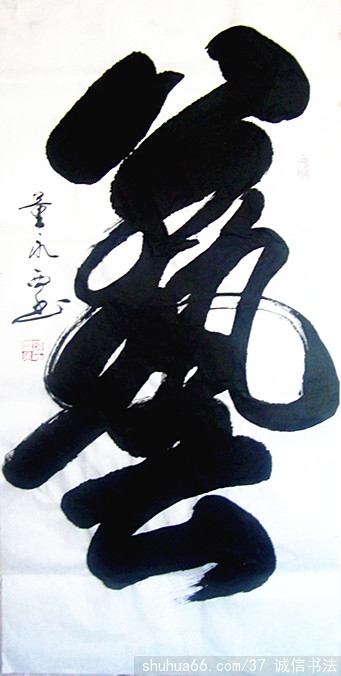 藝
董永西书
shuhua66.com/37 诚信书法